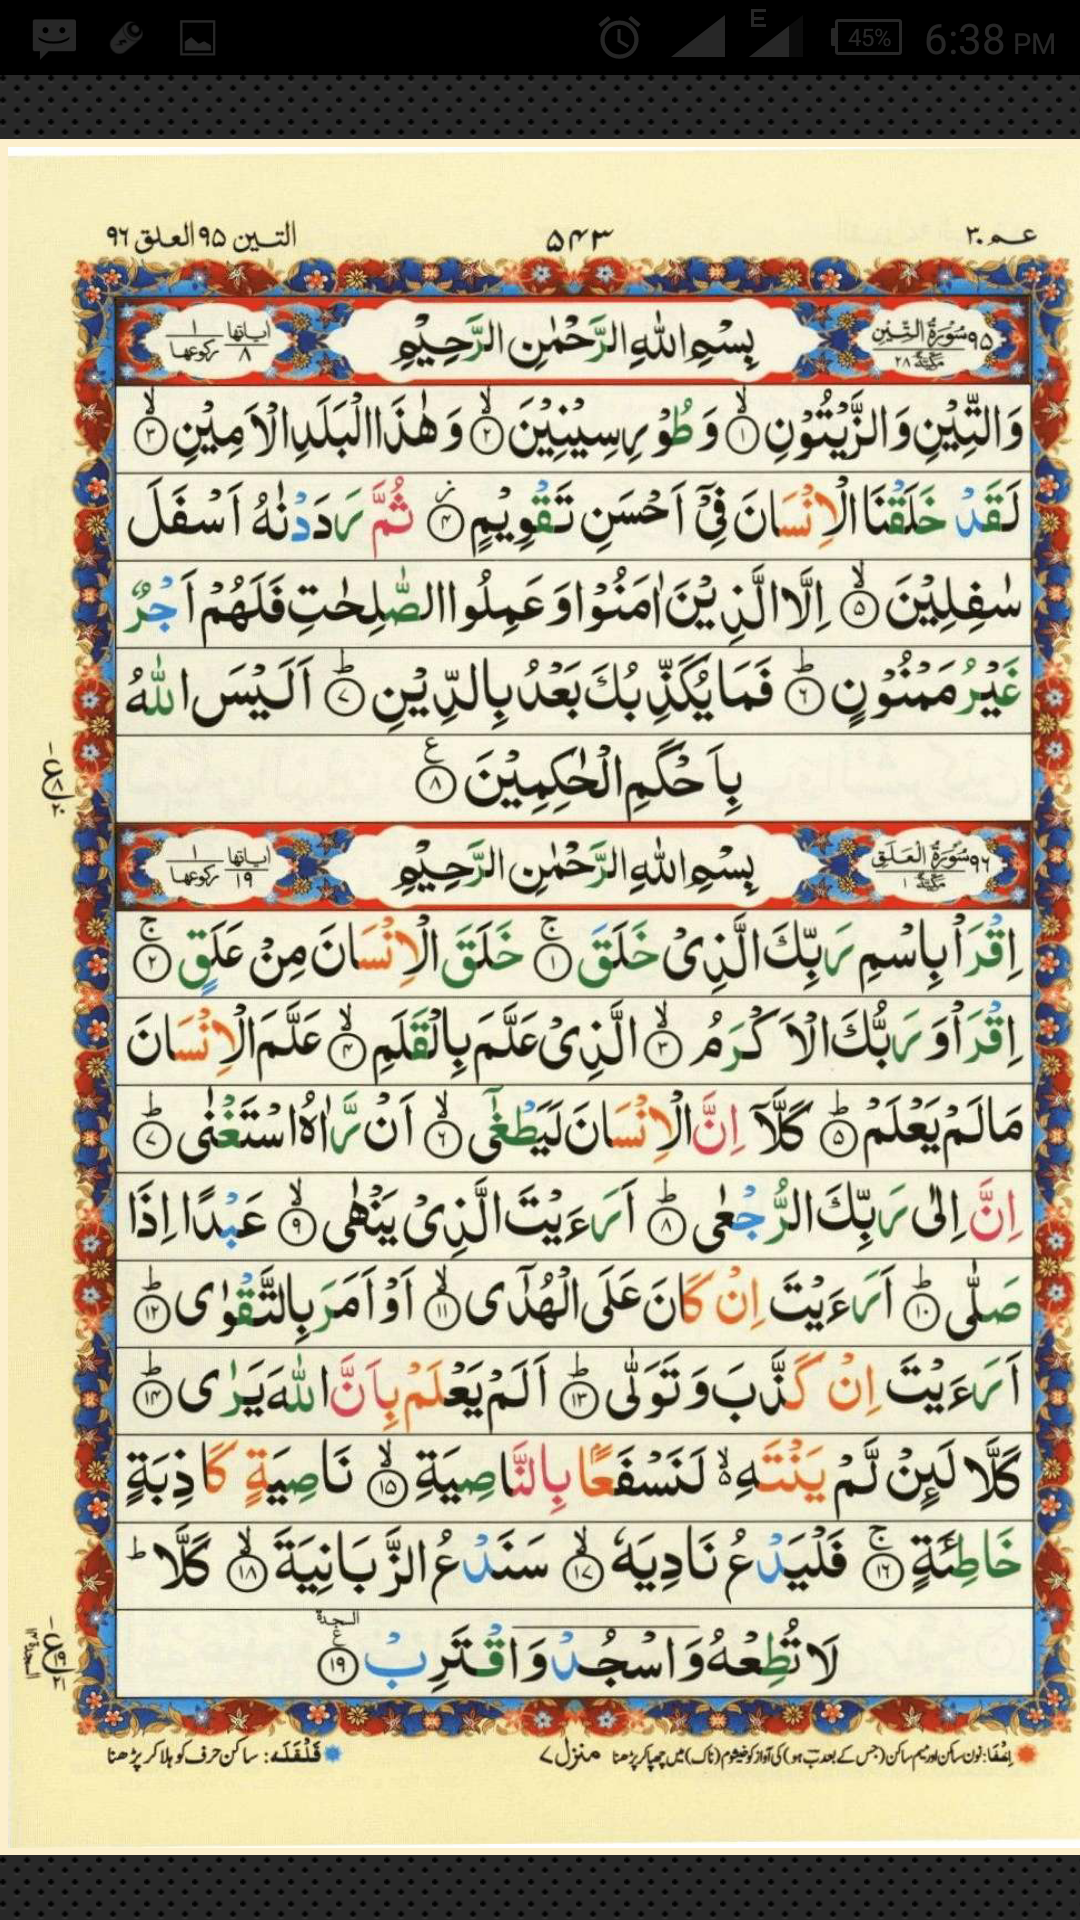 45% 6:38 PM
E
عـم ٣٠
٥٤٣
التـين ٩٥ العلق ٩٦
٩٥ سُوْرَةُ التِّيْنِ مَكِّيَّةٌ ٢٨
بِسْمِ اللهِ الرَّحْمٰنِ الرَّحِيْمِ
اٰیاتها ٨ رکوعها ١
وَالتِّيْنِ وَالزَّيْتُوْنِ ۙ﴿١﴾ وَطُوْرِ سِيْنِيْنَ ۙ﴿٢﴾ وَهٰذَا الْبَلَدِ الْاَمِيْنِ ۙ﴿٣﴾
لَقَدْ خَلَقْنَا الْاِنْسَانَ فِيْٓ اَحْسَنِ تَقْوِيْمٍ ۡ﴿٤﴾ ثُمَّ رَدَدْنٰهُ اَسْفَلَ
سٰفِلِيْنَ ۙ﴿٥﴾ اِلَّا الَّذِيْنَ اٰمَنُوْا وَعَمِلُوا الصّٰلِحٰتِ فَلَهُمْ اَجْرٌ
غَيْرُ مَمْنُوْنٍ ؕ﴿٦﴾ فَمَا يُكَذِّبُكَ بَعْدُ بِالدِّيْنِ ؕ﴿٧﴾ اَلَيْسَ اللهُ
بِاَحْكَمِ الْحٰكِمِيْنَ ﴿٨﴾ ع
١ ع ٨ ٢٠
٩٦ سُوْرَةُ الْعَلَقِ مَكِّيَّةٌ ١
بِسْمِ اللهِ الرَّحْمٰنِ الرَّحِيْمِ
اٰیاتها ١٩ رکوعها ١
اِقْرَاْ بِاسْمِ رَبِّكَ الَّذِيْ خَلَقَ ۚ﴿١﴾ خَلَقَ الْاِنْسَانَ مِنْ عَلَقٍ ۚ﴿٢﴾
اِقْرَاْ وَرَبُّكَ الْاَكْرَمُ ۙ﴿٣﴾ الَّذِيْ عَلَّمَ بِالْقَلَمِ ۙ﴿٤﴾ عَلَّمَ الْاِنْسَانَ
مَا لَمْ يَعْلَمْ ؕ﴿٥﴾ كَلَّآ اِنَّ الْاِنْسَانَ لَيَطْغٰٓى ۙ﴿٦﴾ اَنْ رَّاٰهُ اسْتَغْنٰى ؕ﴿٧﴾
اِنَّ اِلٰى رَبِّكَ الرُّجْعٰى ؕ﴿٨﴾ اَرَءَيْتَ الَّذِيْ يَنْهٰى ۙ﴿٩﴾ عَبْدًا اِذَا
صَلّٰى ؕ﴿١٠﴾ اَرَءَيْتَ اِنْ كَانَ عَلَى الْهُدٰٓى ۙ﴿١١﴾ اَوْ اَمَرَ بِالتَّقْوٰى ؕ﴿١٢﴾
اَرَءَيْتَ اِنْ كَذَّبَ وَتَوَلّٰى ؕ﴿١٣﴾ اَلَمْ يَعْلَمْ بِاَنَّ اللهَ يَرٰى ؕ﴿١٤﴾
كَلَّا لَئِنْ لَّمْ يَنْتَهِ ۙ۬ لَنَسْفَعًۢا بِالنَّاصِيَةِ ۙ﴿١٥﴾ نَاصِيَةٍ كَاذِبَةٍ
خَاطِئَةٍ ۚ﴿١٦﴾ فَلْيَدْعُ نَادِيَهٗ ۙ﴿١٧﴾ سَنَدْعُ الزَّبَانِيَةَ ۙ﴿١٨﴾ كَلَّا ؕ
لَا تُطِعْهُ وَاسْجُدْ وَاقْتَرِبْ ﴿١٩﴾ السجدة ع
١ ع ١٩ ٢١
السجدة ١٤
اِخْفَا: نون ساکن اور میم ساکن (جس کے بعد ب ہو) کی آواز کو خیشوم (ناک) میں چھپا کر پڑھنا
منزل ٧
قَلْقَلَه: ساکن حرف کو ہلا کر پڑھنا